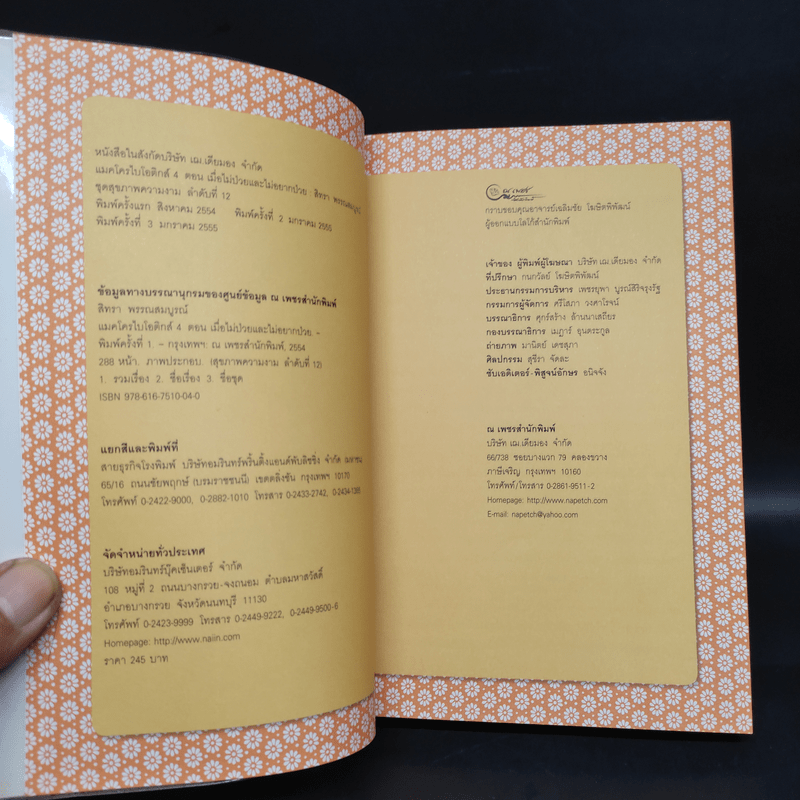 หนังสือในสังกัดบริษัท เฌ.เดียมอง จำกัด
แมคโครไบโอติกส์ 4 ตอน เมื่อไม่ป่วยและไม่อยากป่วย : สิทรา พรรณสมบูรณ์
ชุดสุขภาพความงาม ลำดับที่ 12
พิมพ์ครั้งแรก สิงหาคม 2554 พิมพ์ครั้งที่ 2 มกราคม 2555
พิมพ์ครั้งที่ 3 มกราคม 2555
ข้อมูลทางบรรณานุกรมของศูนย์ข้อมูล ณ เพชรสำนักพิมพ์
สิทรา พรรณสมบูรณ์
แมคโครไบโอติกส์ 4 ตอน เมื่อไม่ป่วยและไม่อยากป่วย –
พิมพ์ครั้งที่ 1. – กรุงเทพฯ: ณ เพชรสำนักพิมพ์, 2554
288 หน้า. ภาพประกอบ. (สุขภาพความงาม ลำดับที่ 12)
1. รวมเรื่อง 2. ชื่อเรื่อง 3. ชื่อชุด
ISBN 978-616-7510-04-0
แยกสีและพิมพ์ที่
สายธุรกิจโรงพิมพ์ บริษัทอมรินทร์พริ้นติ้งแอนด์พับลิชชิ่ง จำกัด (มหาชน)
65/16 ถนนชัยพฤกษ์ (บรมราชชนนี) เขตตลิ่งชัน กรุงเทพฯ 10170
โทรศัพท์ 0-2422-9000, 0-2882-1010 โทรสาร 0-2433-2742, 0-2434-1385
จัดจำหน่ายทั่วประเทศ
บริษัทอมรินทร์บุ๊คเซ็นเตอร์ จำกัด
108 หมู่ที่ 2 ถนนบางกรวย-จงถนอม ตำบลมหาสวัสดิ์
อำเภอบางกรวย จังหวัดนนทบุรี 11130
โทรศัพท์ 0-2423-9999 โทรสาร 0-2449-9222, 0-2449-9500-6
Homepage: http://www.naiin.com
ราคา 245 บาท
ณ เพชร
กราบขอบคุณอาจารย์เฉลิมชัย โฆษิตพิพัฒน์
ผู้ออกแบบโลโก้สำนักพิมพ์
เจ้าของ ผู้พิมพ์ผู้โฆษณา บริษัท เฌ.เดียมอง จำกัด
ที่ปรึกษา กนกวลัยย์ โฆษิตพิพัฒน์
ประธานกรรมการบริหาร เพชรยุพา บูรณ์สิริจรุงรัฐ
กรรมการผู้จัดการ ศรีโสภา วงศาโรจน์
บรรณาธิการ ศุกร์สร้าง ล้านนาเสถียร
กองบรรณาธิการ เมฏาร์ อุนตระกูล
ถ่ายภาพ มานิตย์ เดชสุภา
ศิลปกรรม สุชีรา จัตละ
ซับเอดิเตอร์-พิสูจน์อักษร อนิจจัง
ณ เพชรสำนักพิมพ์
บริษัท เฌ.เดียมอง จำกัด
66/738 ซอยบางแวก 79 คลองขวาง
ภาษีเจริญ กรุงเทพฯ 10160
โทรศัพท์/โทรสาร 0-2861-9511-2
Homepage: http://www.napetch.com
E-mail: napetch@yahoo.com